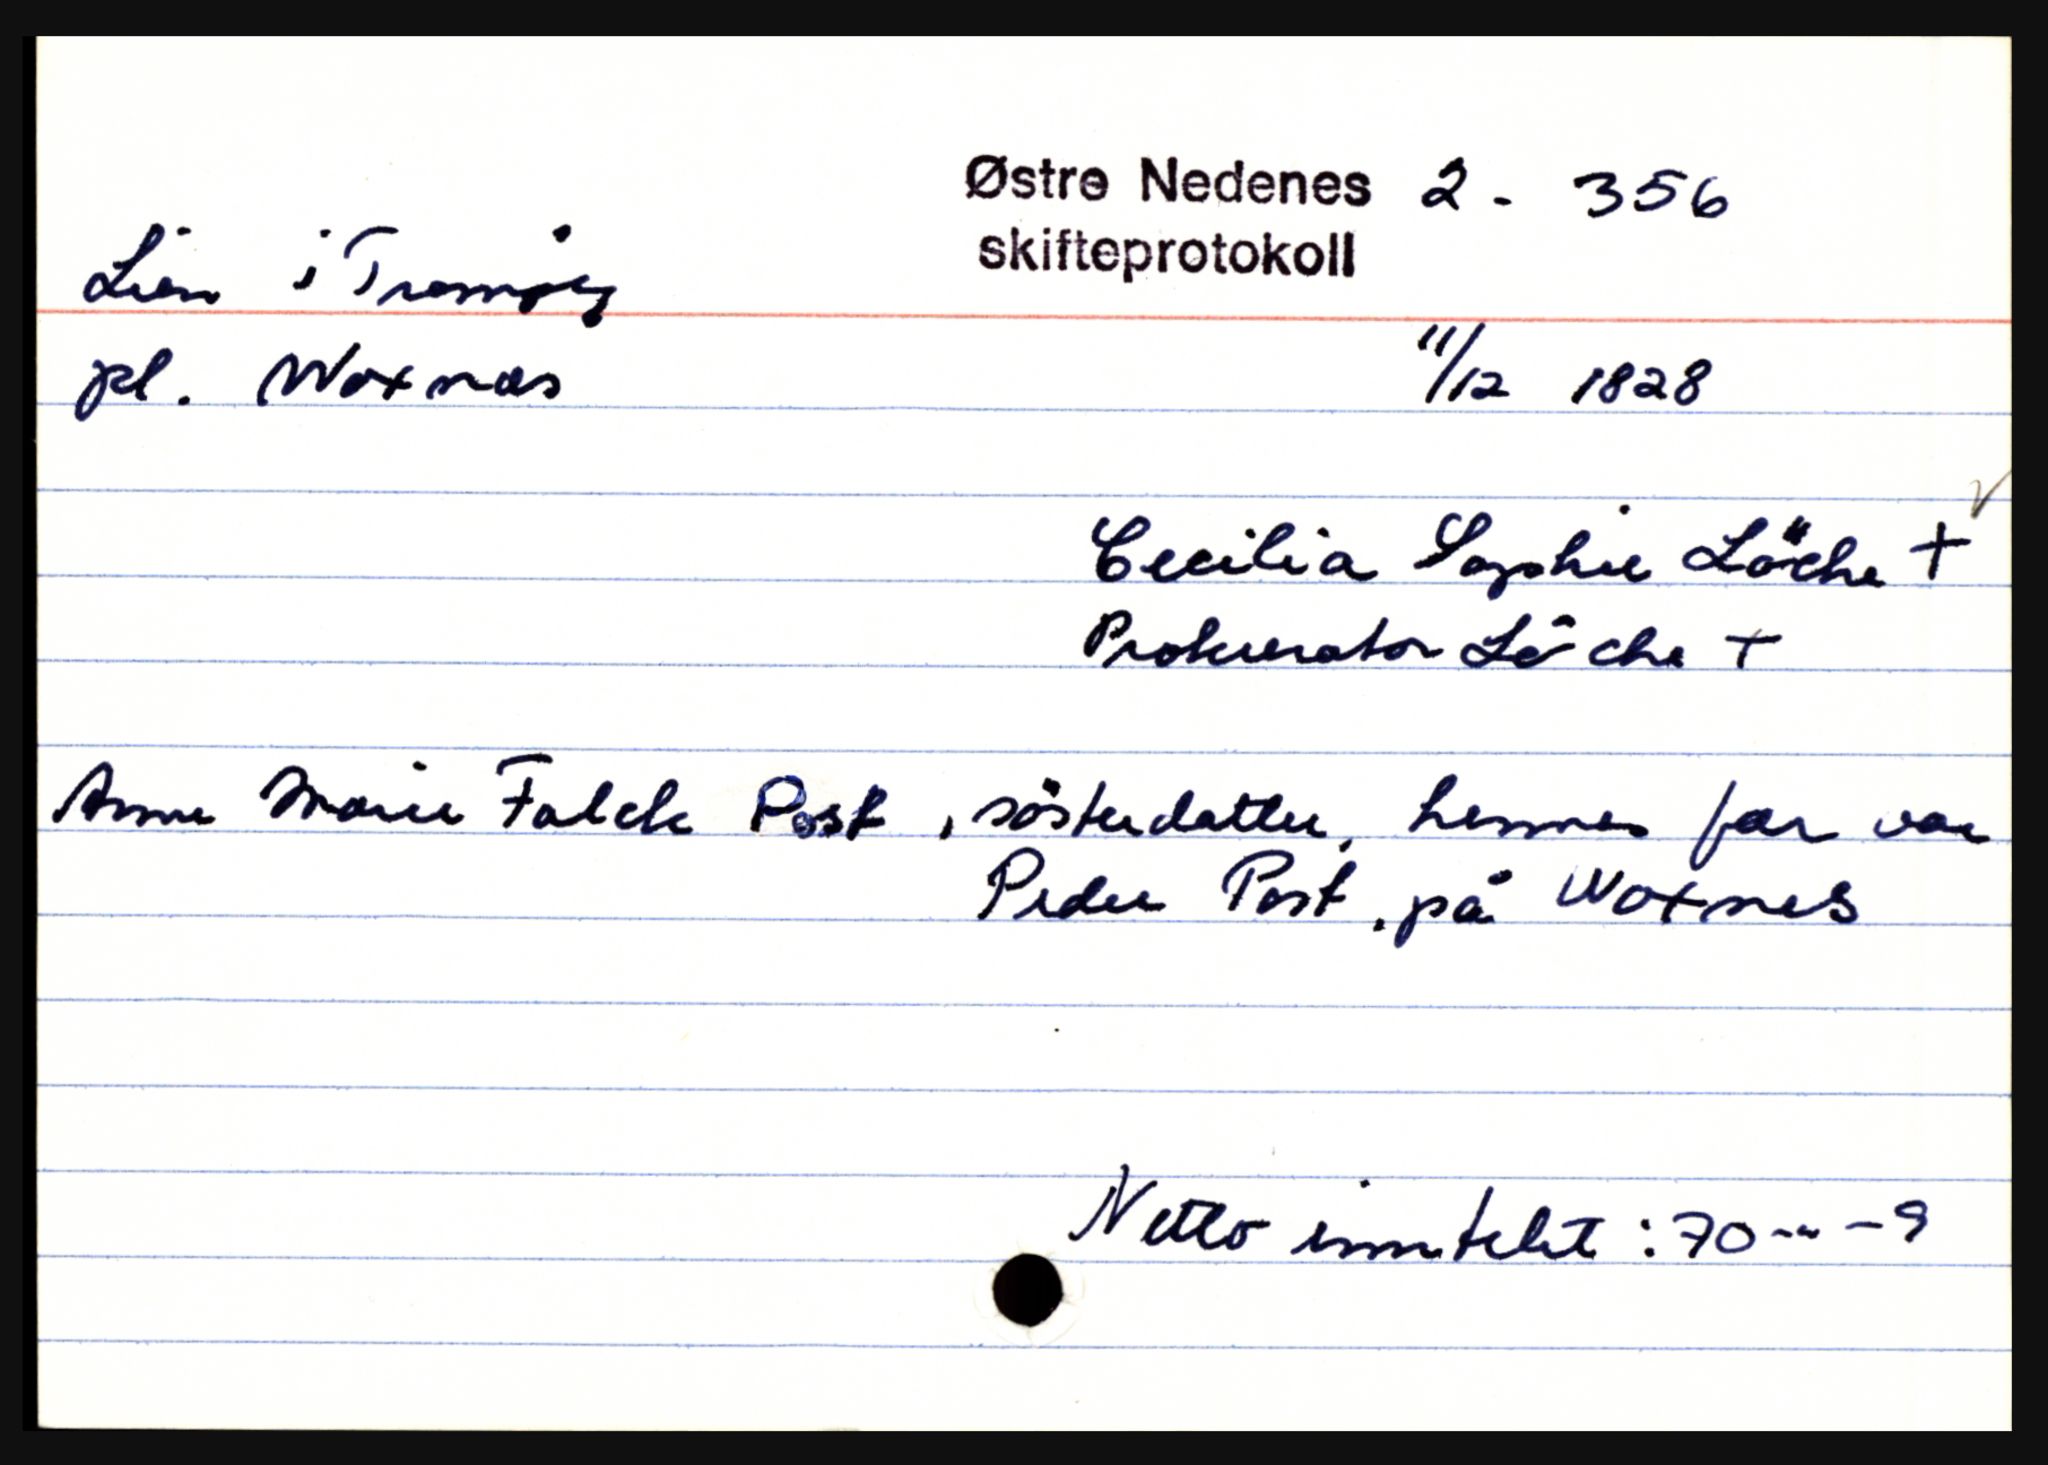 Østre Nedenes 2 - 356
skifteprotokoll
Lien i Tromøy
pl. Woxnæs 11/12 1828
Cecilia Sophie Löche +
Prokurator Löche +
Anne Marie Falck Post, sösterdatter, hennes far var
Peder Post, på Woxnes
Netto inntekt : 70 - - 9